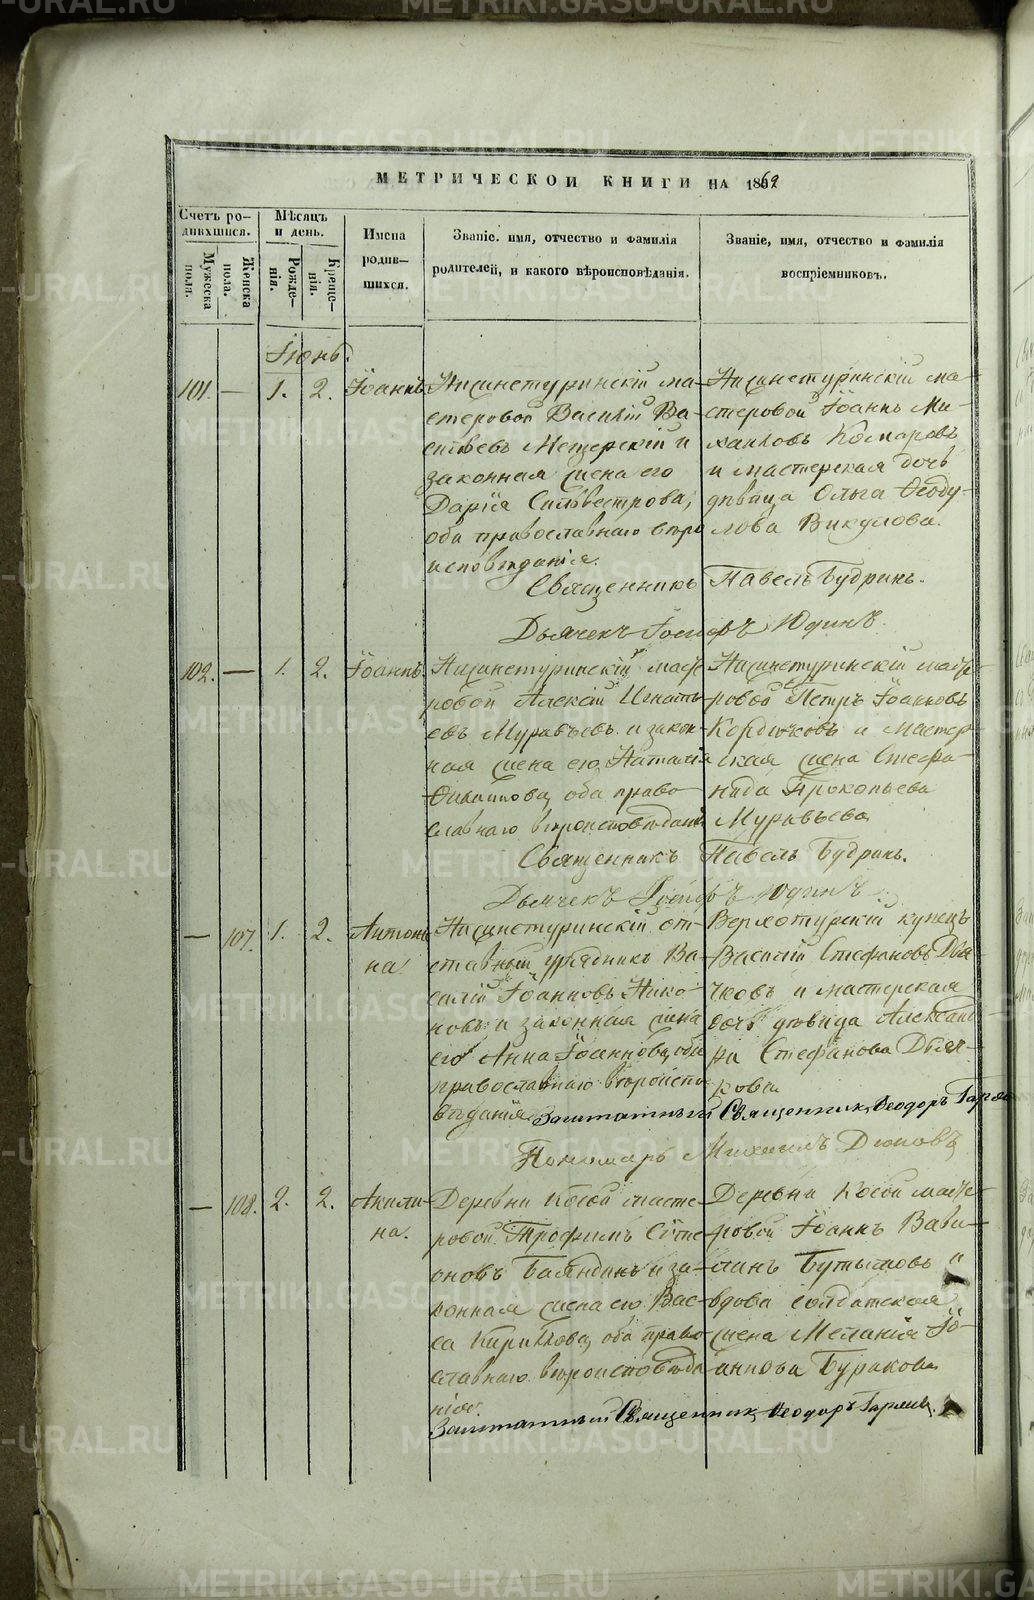 МЕТРИЧЕСКОЙ КНИГИ НА 1869
Счетъ ро-
дившихся.
Мужеска
пола.
Женска
пола.
Мѣсяцъ
и день.
Рожде-
нія.
Креще-
нія.
Имена
родив-
шихся.
Званіе, имя, отчество и фамилія
родителей, и какого вѣроисповѣданія.
Званіе, имя, отчество и фамилія
воспріемниковъ.
Іюнь.
101. — 1. 2. Іоаннъ.
Нижнетуринскій ма-
стеровой Василій Ва-
сильевъ Мезерскій и
законная жена его
Дарія Сильвестрова,
оба православнаго вѣро
исповѣданія.
Нижнетуринскій ма-
стеровой Іоаннъ Ми-
хаиловъ Комаровъ
и мастерская дочь
дѣвица Ольга Ѳеоду-
лова Викулова.
Священникъ Павелъ Будринъ.
Дьячекъ Іосифъ Юдинъ.
102. — 1. 2. Іоаннъ.
Нижнетуринскій масте
ровой Алексій Игнать
евъ Муравьевъ и закон-
ная жена его Наталія
Филиппова, оба право
славнаго вѣроисповѣданія
Нижнетуринскій масте-
ровой Петръ Іоанновъ
Кордюковъ и мастер-
ская жена Стефа-
нида Прокопьева
Муравьева
Священникъ Павелъ Будринъ.
Дьячекъ Іосифъ Юдинъ.
— 107. 1. 2. Антони
на.
Нижнетуринскій от-
ставный урядникъ Ва-
силій Іоанновъ Нико-
новъ и законная жена
его Анна Іоаннова, оба
православнаго вѣроиспо
вѣданія
Верхотурскій купецъ
Василій Стефановъ Дья
чковъ и мастерская
дочь дѣвица Александ
ра Стефанова Дьяч-
кова
Заштатный Священникъ Ѳеодоръ
Пономарь Михаилъ
— 108. 2. 2. Акили-
на.
Деревни Косой масте-
ровой Трофимъ Симе-
оновъ Баяндинъ и за-
конная жена его Вас-
са Кириллова, оба право
славнаго вѣроисповѣда
нія.
Деревни Косой масте-
ровой Іоаннъ Вави-
линъ Бутыловъ и
вдова солдатская
жена Меланія Іо-
аннова Буракова
Заштатный Священникъ Ѳеодоръ